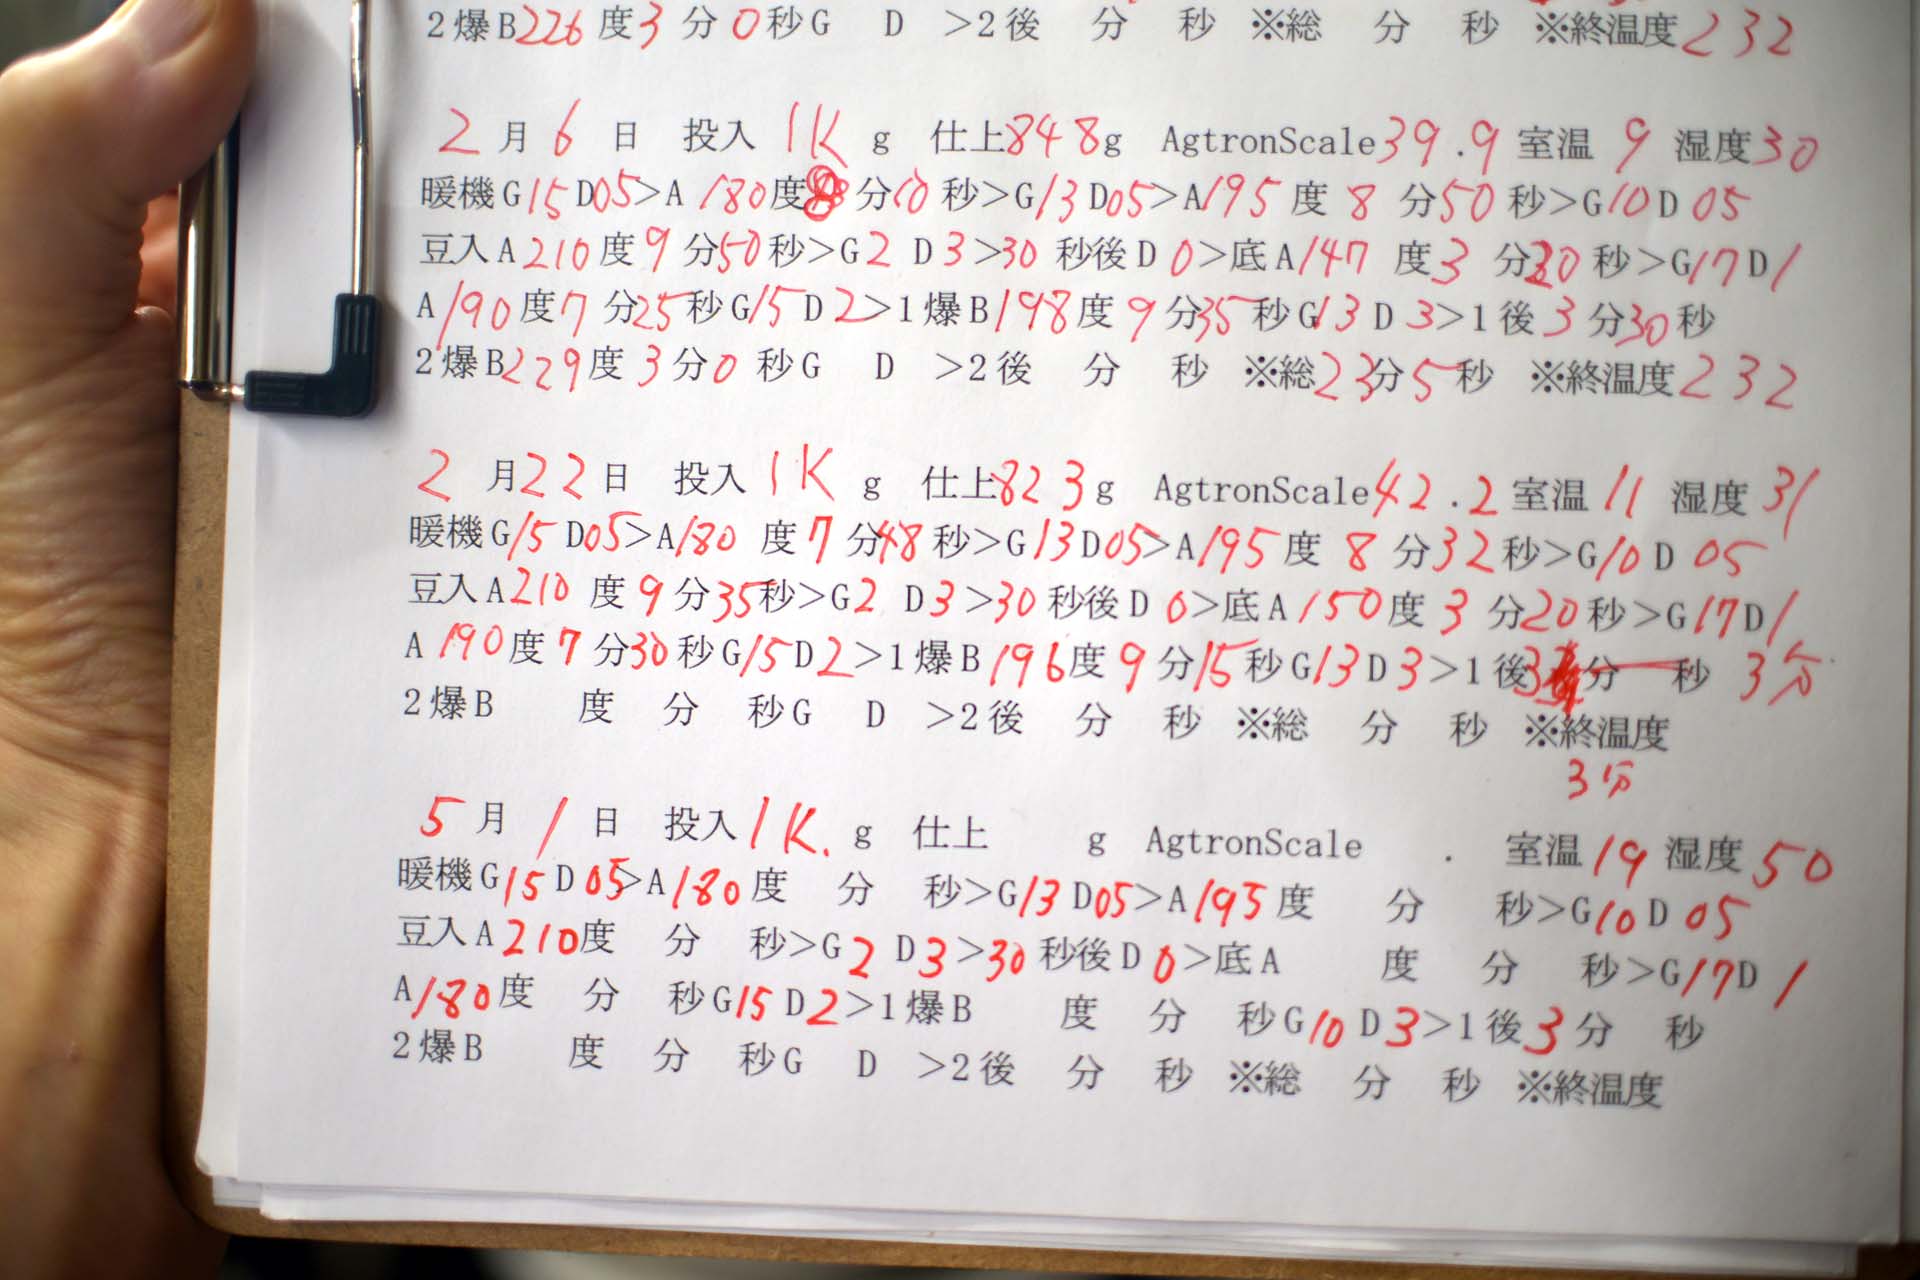 2爆B226度3分0秒G D >2後 分 秒 ※総 分 秒 ※終温度232
2月6日 投入1Kg 仕上848g AgtronScale39.9室温9湿度30
暖機G15D05>A180度8分10秒>G13D05>A195度8分50秒>G10D05
豆入A210度9分50秒>G2D3>30秒後D0>底A147度3分20秒>G17D1
A190度7分25秒G15D2>1爆B198度9分35秒G13D3>1後3分30秒
2爆B229度3分0秒G D >2後 分 秒 ※総23分5秒 ※終温度232
2月22日 投入1Kg 仕上823g AgtronScale42.2室温11湿度31
暖機G15D05>A180度7分48秒>G13D05>A195度8分32秒>G10D05
豆入A210度9分35秒>G2D3>30秒後D0>底A150度3分20秒>G17D1
A190度7分30秒G15D2>1爆B196度9分15秒G13D3>1後3分 秒 3分
2爆B 度 分 秒G D >2後 分 秒 ※総 分 秒 ※終温度
3分
5月1日 投入1K.g 仕上 g AgtronScale . 室温19湿度50
暖機G15D05>A180度 分 秒>G13D05>A195度 分 秒>G10D05
豆入A210度 分 秒>G2D3>30秒後D0>底A 度 分 秒>G17D1
A180度 分 秒G15D2>1爆B 度 分 秒G10D3>1後3分 秒
2爆B 度 分 秒G D >2後 分 秒 ※総 分 秒 ※終温度